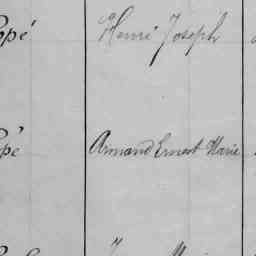 ppé Henri Joseph
ppé Armand Ernest Marie